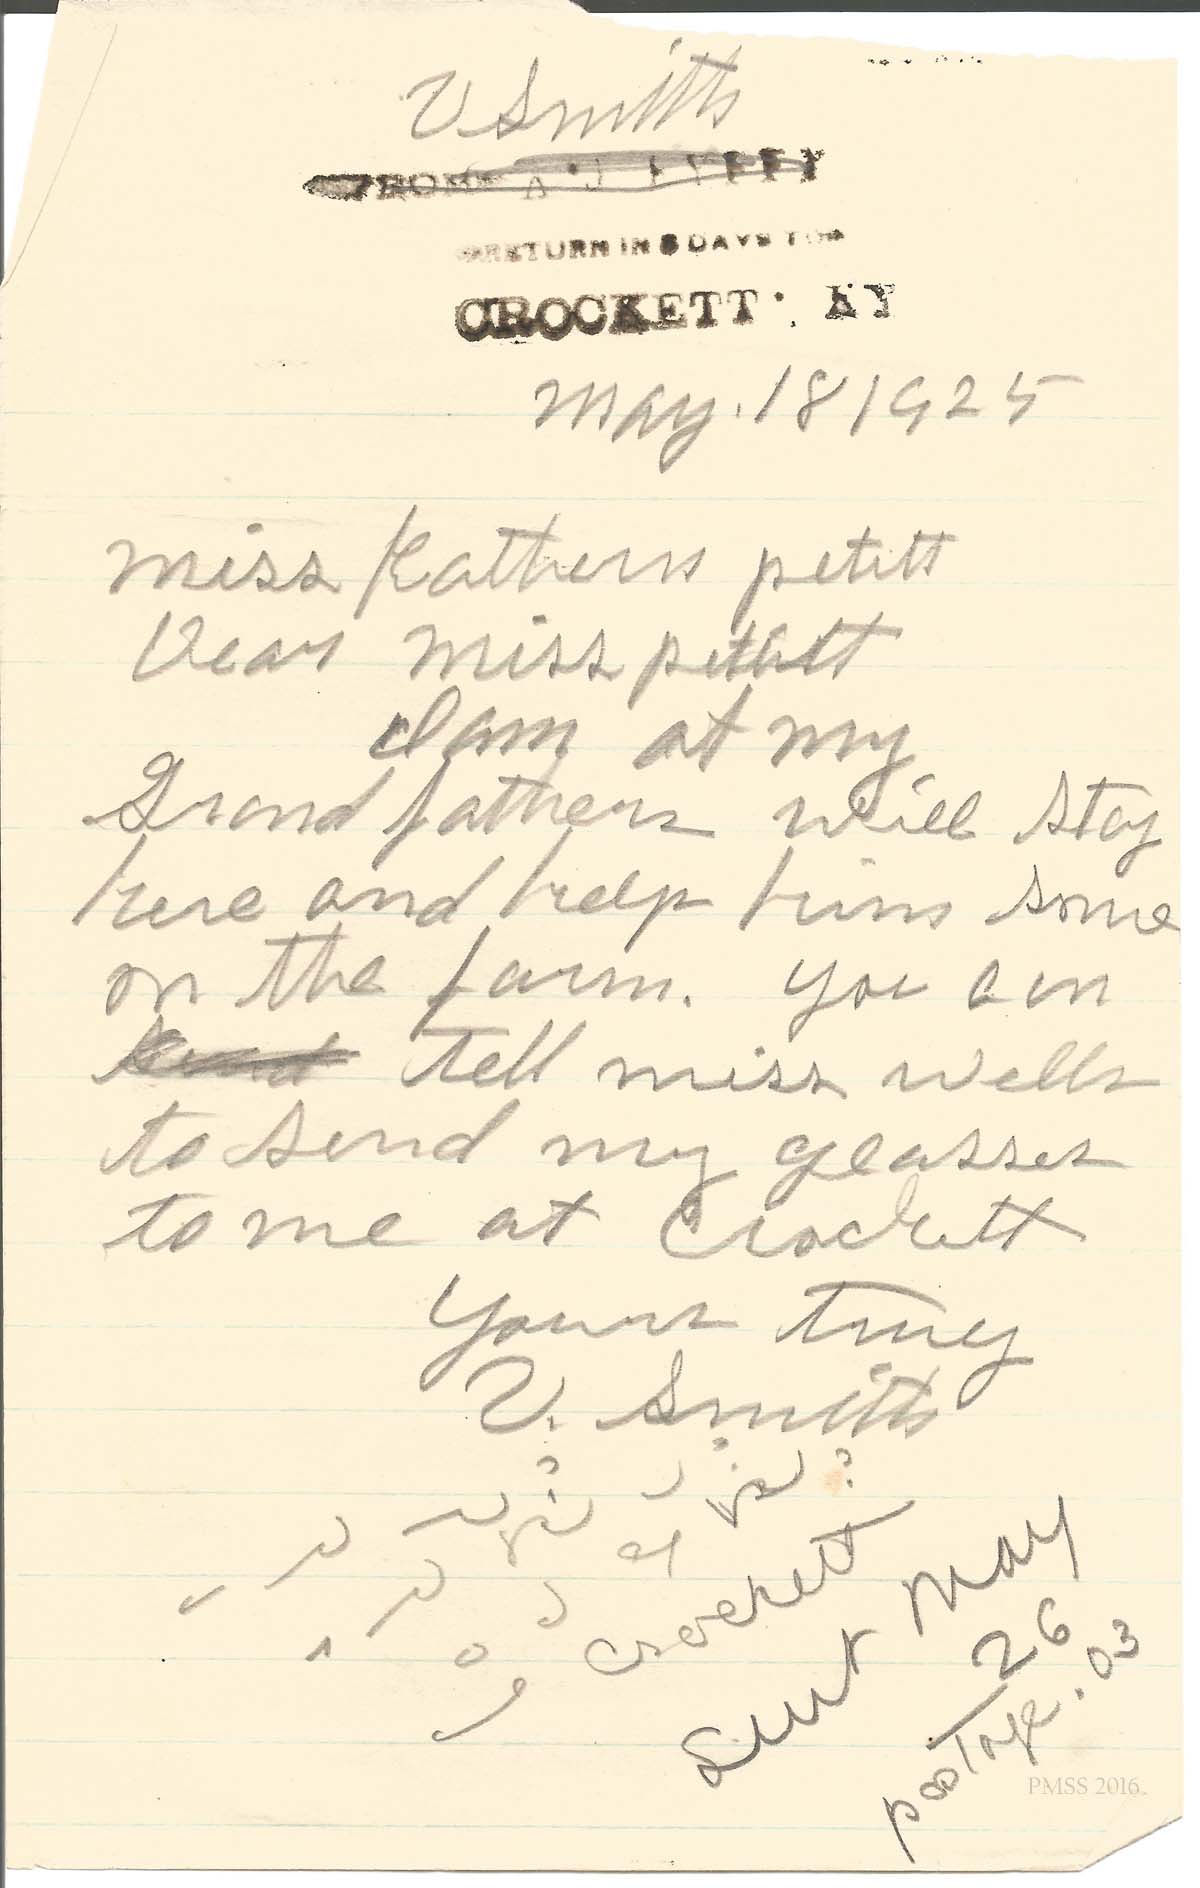 V Smith
FROM A. J. FYFFY
RETURN IN 5 DAYS TO
CROCKETT, KY
May. 18 1925
miss Kathern petitt
Dear miss petitt
I am at my
Grandfathers will stay
here and help him some
on the farm. you can
tell miss wells
to send my glasses
to me at Crockett
yours truly
V. Smith
Crockett
Sent May
26
postage .03
PMSS 2016.